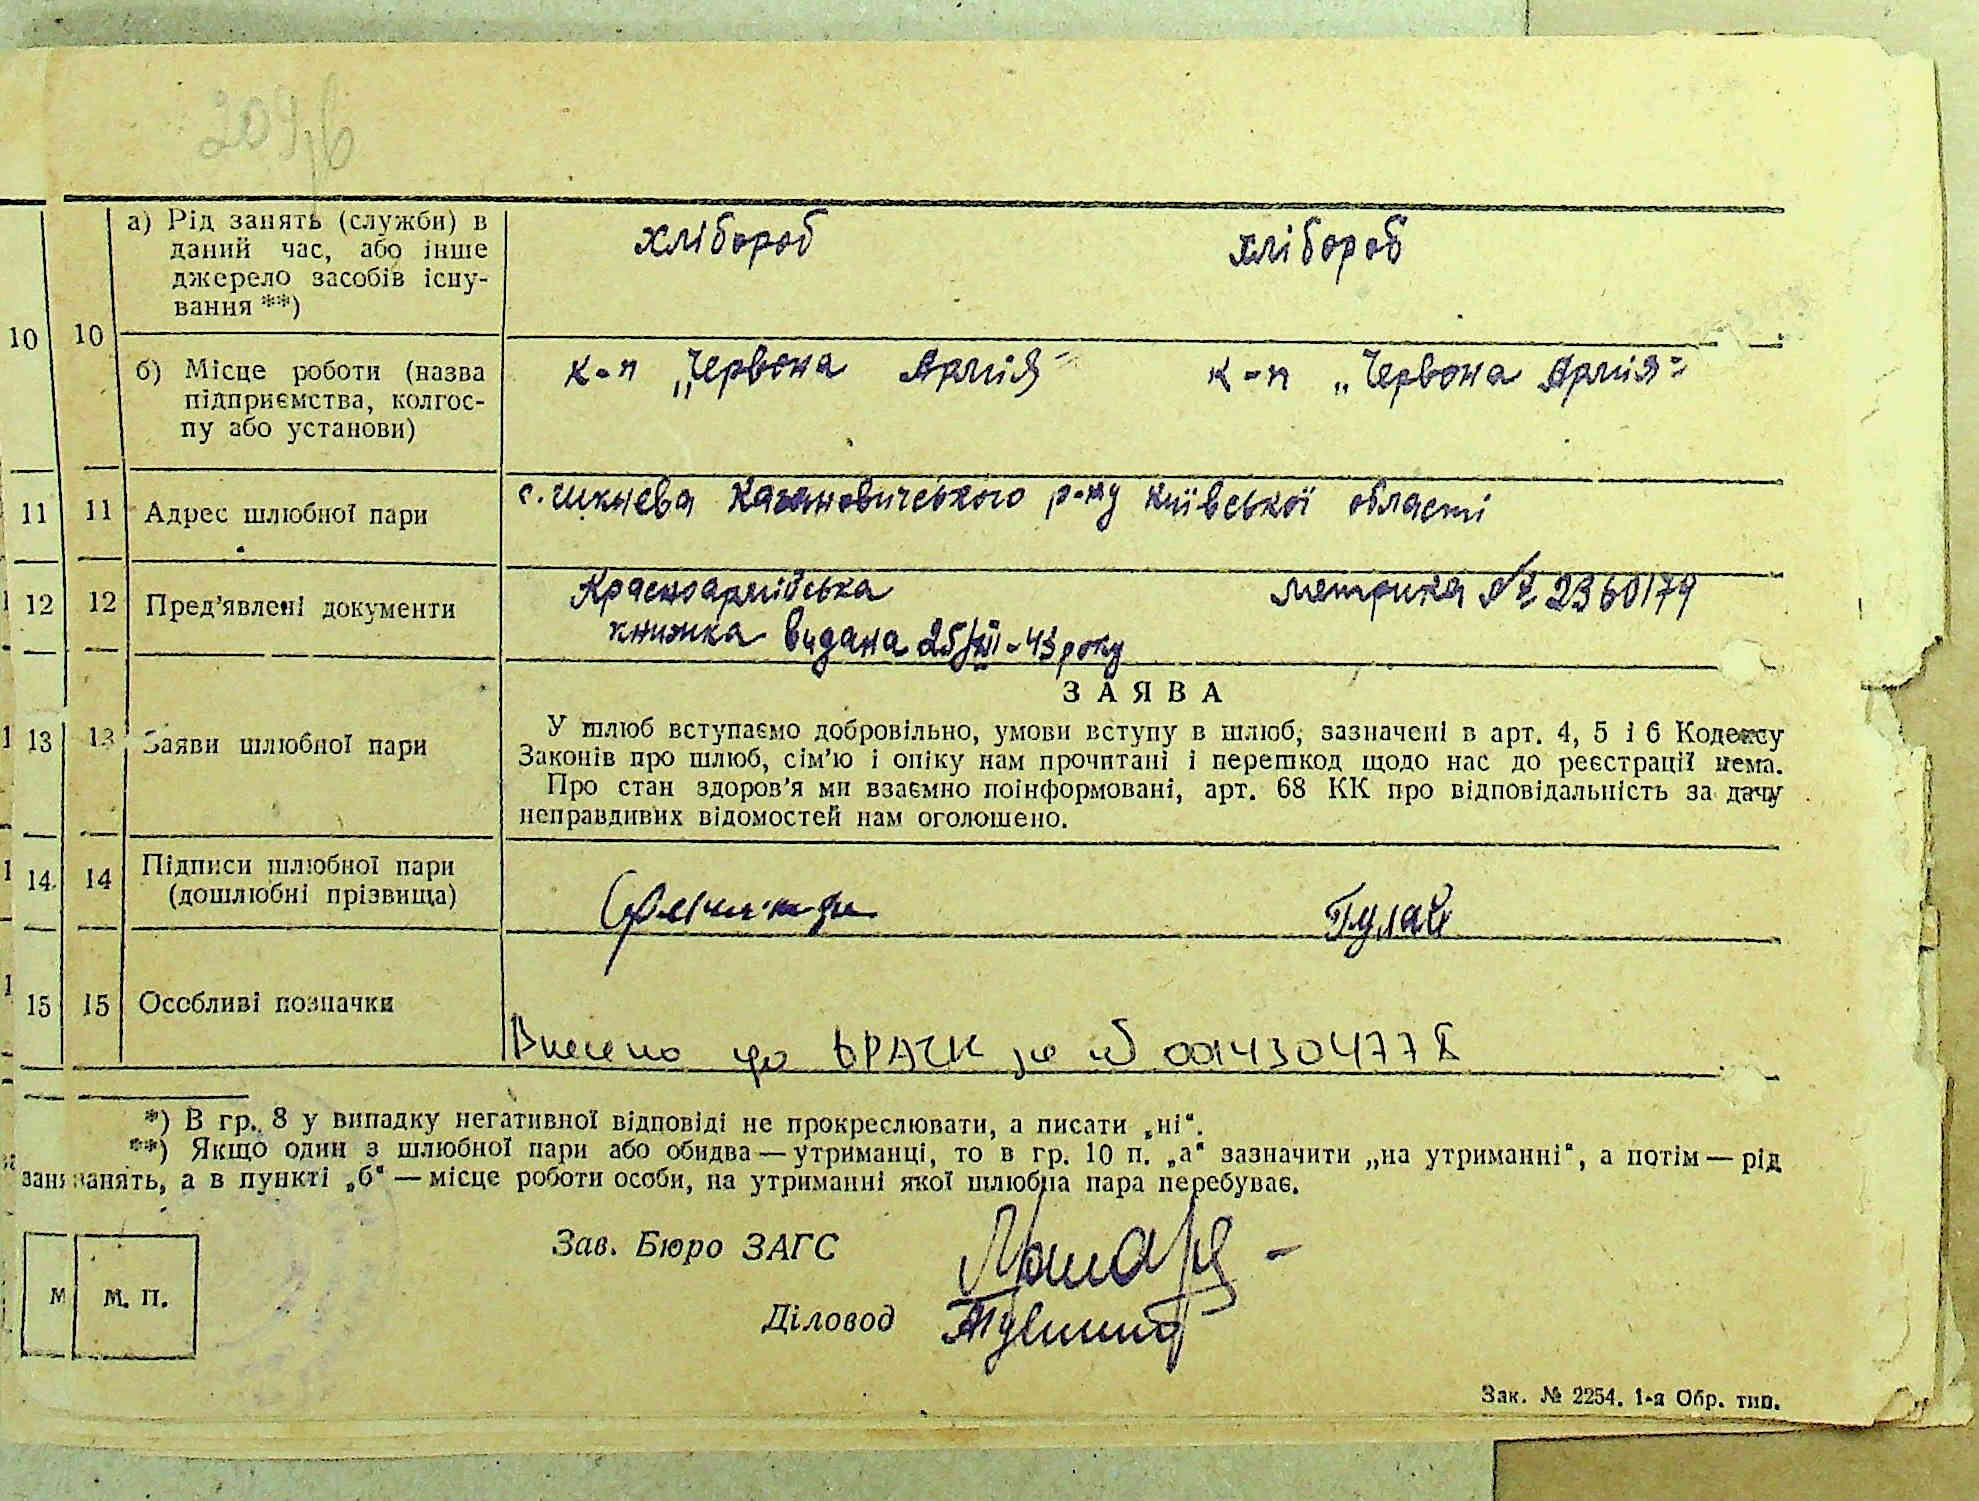 10 10 а) Рід занять (служби) в
даний час, або інше
джерело засобів існу-
вання **)
хлібороб хлібороб
б) Місце роботи (назва
підприємства, колгос-
пу або установи)
к-п „Червона Армія" к-п „Червона Армія"
11 11 Адрес шлюбної пари
Кагановичського р-ну Київської області
12 12 Пред'явлені документи
Красноармійська метрика № 2360179
книжка видана
13 13 Заяви шлюбної пари
ЗАЯВА
У шлюб вступаємо добровільно, умови вступу в шлюб, зазначені в арт. 4, 5 і 6 Кодексу
Законів про шлюб, сім'ю і опіку нам прочитані і перешкод щодо нас до реєстрації нема.
Про стан здоров'я ми взаємно поінформовані, арт. 68 КК про відповідальність за дачу
неправдивих відомостей нам оголошено.
14 14 Підписи шлюбної пари
(дошлюбні прізвища)
Гулай
15 15 Особливі позначки
Внесено до ДРАЦС за № 00143047778
*) В гр. 8 у випадку негативної відповіді не прокреслювати, а писати „ні".
**) Якщо один з шлюбної пари або обидва — утриманці, то в гр. 10 п. „а" зазначити „на утриманні", а потім — рід
занять, а в пункті „б" — місце роботи особи, на утриманні якої шлюбна пара перебуває.
Зав. Бюро ЗАГС
М М. П.
Діловод
Зак. № 2254. 1-я Обр. тип.